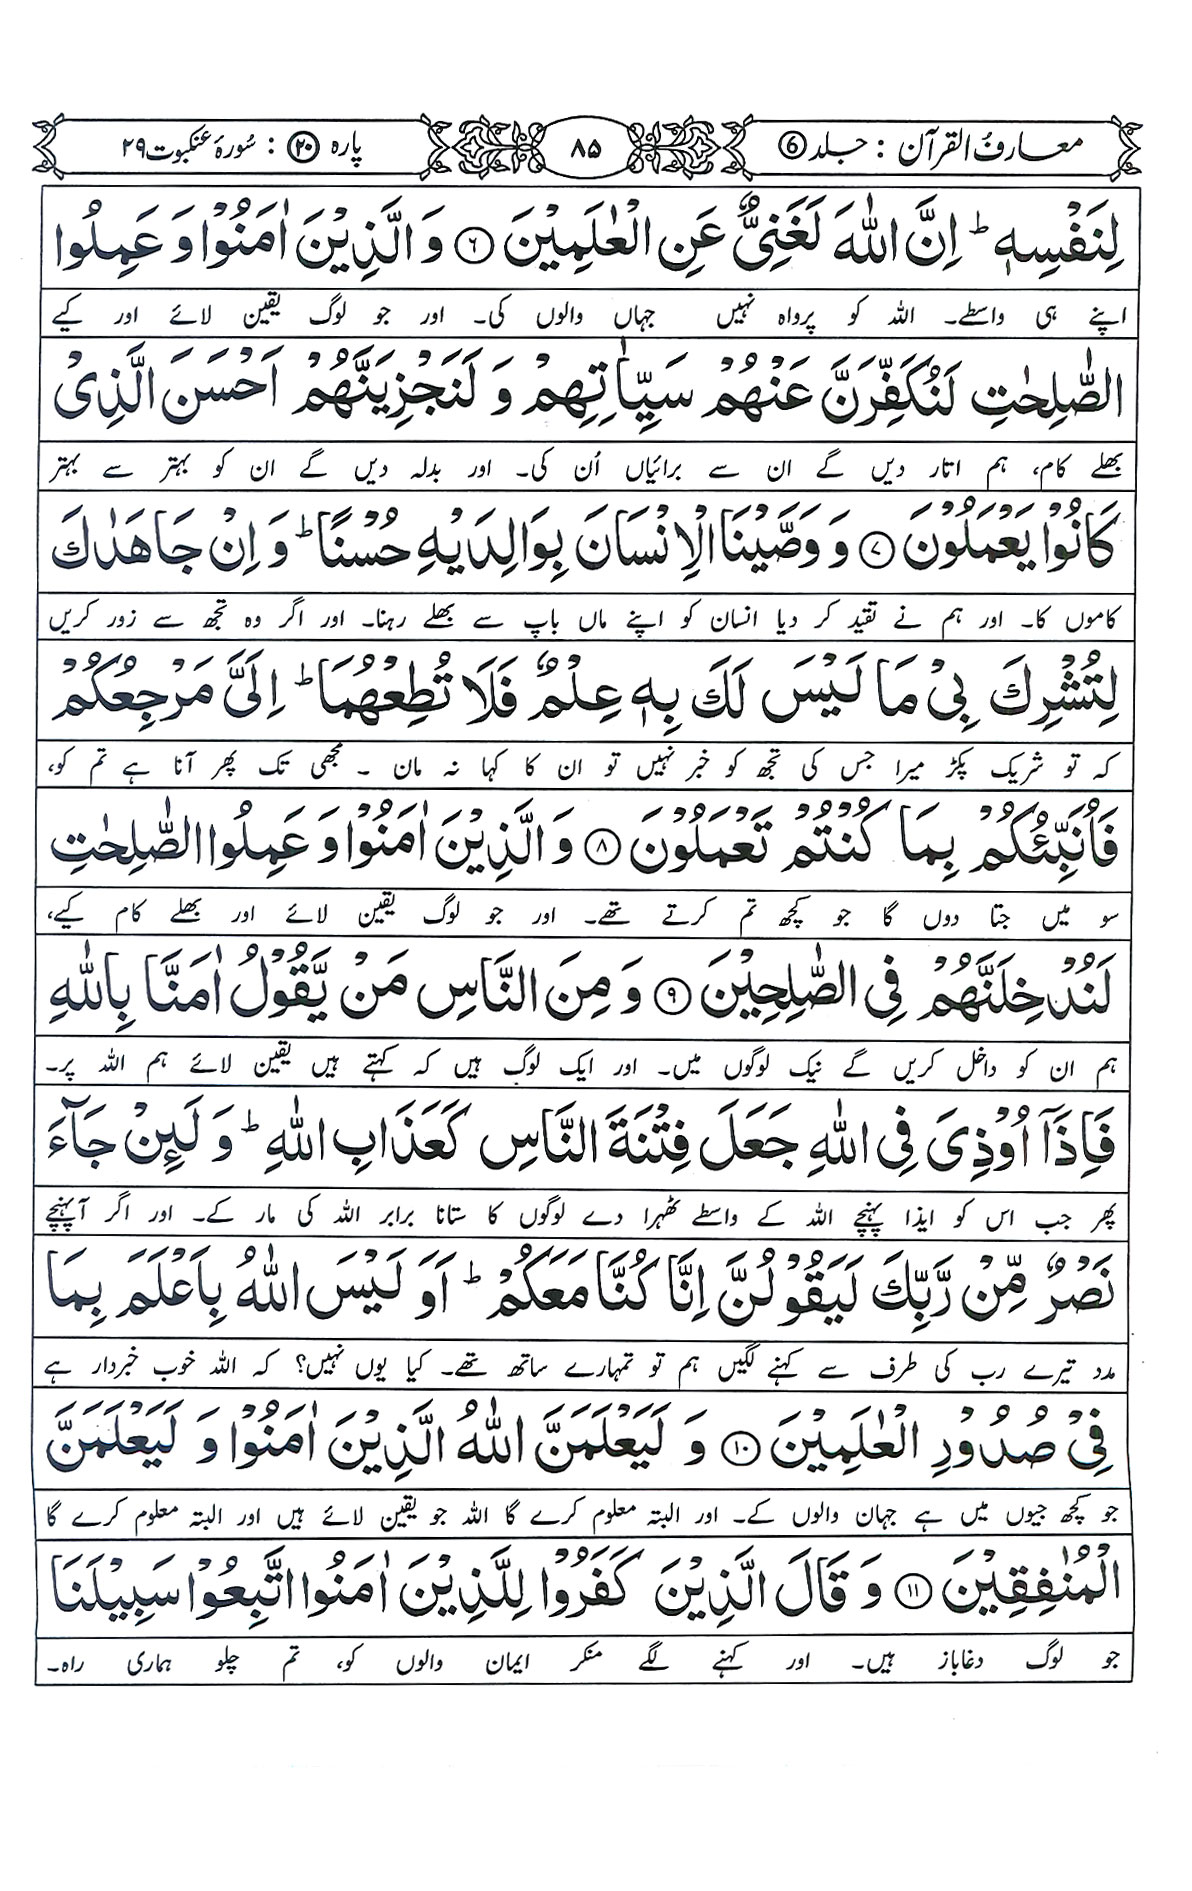 معارف القرآن : جلد ⑥
۸۵
پارہ ۲۰ : سُورۂ عنکبوت ۲۹
لِنَفْسِهٖ ؕ اِنَّ اللّٰهَ لَغَنِیٌّ عَنِ الْعٰلَمِیْنَ ۶ وَ الَّذِیْنَ اٰمَنُوْا وَ عَمِلُوا
اپنے ہی واسطے۔ اللہ کو پرواہ نہیں جہاں والوں کی۔ اور جو لوگ یقین لائے اور کیے
الصّٰلِحٰتِ لَنُكَفِّرَنَّ عَنْهُمْ سَیِّاٰتِهِمْ وَ لَنَجْزِیَنَّهُمْ اَحْسَنَ الَّذِیْ
بھلے کام، ہم اتار دیں گے ان سے برائیاں اُن کی۔ اور بدلہ دیں گے ان کو بہتر سے بہتر
كَانُوْا یَعْمَلُوْنَ ۷ وَ وَصَّیْنَا الْاِنْسَانَ بِوَالِدَیْهِ حُسْنًا ؕ وَ اِنْ جَاهَدٰكَ
کاموں کا۔ اور ہم نے تقید کر دیا انسان کو اپنے ماں باپ سے بھلے رہنا۔ اور اگر وہ تجھ سے زور کریں
لِتُشْرِكَ بِیْ مَا لَیْسَ لَكَ بِهٖ عِلْمٌ فَلَا تُطِعْهُمَا ؕ اِلَیَّ مَرْجِعُكُمْ
کہ تو شریک پکڑ میرا جس کی تجھ کو خبر نہیں تو ان کا کہا نہ مان ۔ مجھی تک پھر آنا ہے تم کو،
فَاُنَبِّئُكُمْ بِمَا كُنْتُمْ تَعْمَلُوْنَ ۸ وَ الَّذِیْنَ اٰمَنُوْا وَ عَمِلُوا الصّٰلِحٰتِ
سو میں جتا دوں گا جو کچھ تم کرتے تھے۔ اور جو لوگ یقین لائے اور بھلے کام کیے،
لَنُدْخِلَنَّهُمْ فِی الصّٰلِحِیْنَ ۹ وَ مِنَ النَّاسِ مَنْ یَّقُوْلُ اٰمَنَّا بِاللّٰهِ
ہم ان کو داخل کریں گے نیک لوگوں میں۔ اور ایک لوگ ہیں کہ کہتے ہیں یقین لائے ہم اللہ پر۔
فَاِذَاۤ اُوْذِیَ فِی اللّٰهِ جَعَلَ فِتْنَةَ النَّاسِ كَعَذَابِ اللّٰهِ ؕ وَ لَىِٕنْ جَآءَ
پھر جب اس کو ایذا پہنچے اللہ کے واسطے ٹھہرا دے لوگوں کا ستانا برابر اللہ کی مار کے۔ اور اگر آپہنچے
نَصْرٌ مِّنْ رَّبِّكَ لَیَقُوْلُنَّ اِنَّا كُنَّا مَعَكُمْ ؕ اَوَ لَیْسَ اللّٰهُ بِاَعْلَمَ بِمَا
مدد تیرے رب کی طرف سے کہنے لگیں ہم تو تمہارے ساتھ تھے۔ کیا یوں نہیں؟ کہ اللہ خوب خبردار ہے
فِیْ صُدُوْرِ الْعٰلَمِیْنَ ۱۰ وَ لَیَعْلَمَنَّ اللّٰهُ الَّذِیْنَ اٰمَنُوْا وَ لَیَعْلَمَنَّ
جو کچھ جیوں میں ہے جہان والوں کے۔ اور البتہ معلوم کرے گا اللہ جو یقین لائے ہیں اور البتہ معلوم کرے گا
الْمُنٰفِقِیْنَ ۱۱ وَ قَالَ الَّذِیْنَ كَفَرُوْا لِلَّذِیْنَ اٰمَنُوا اتَّبِعُوْا سَبِیْلَنَا
جو لوگ دغاباز ہیں۔ اور کہنے لگے منکر ایمان والوں کو، تم چلو ہماری راہ۔